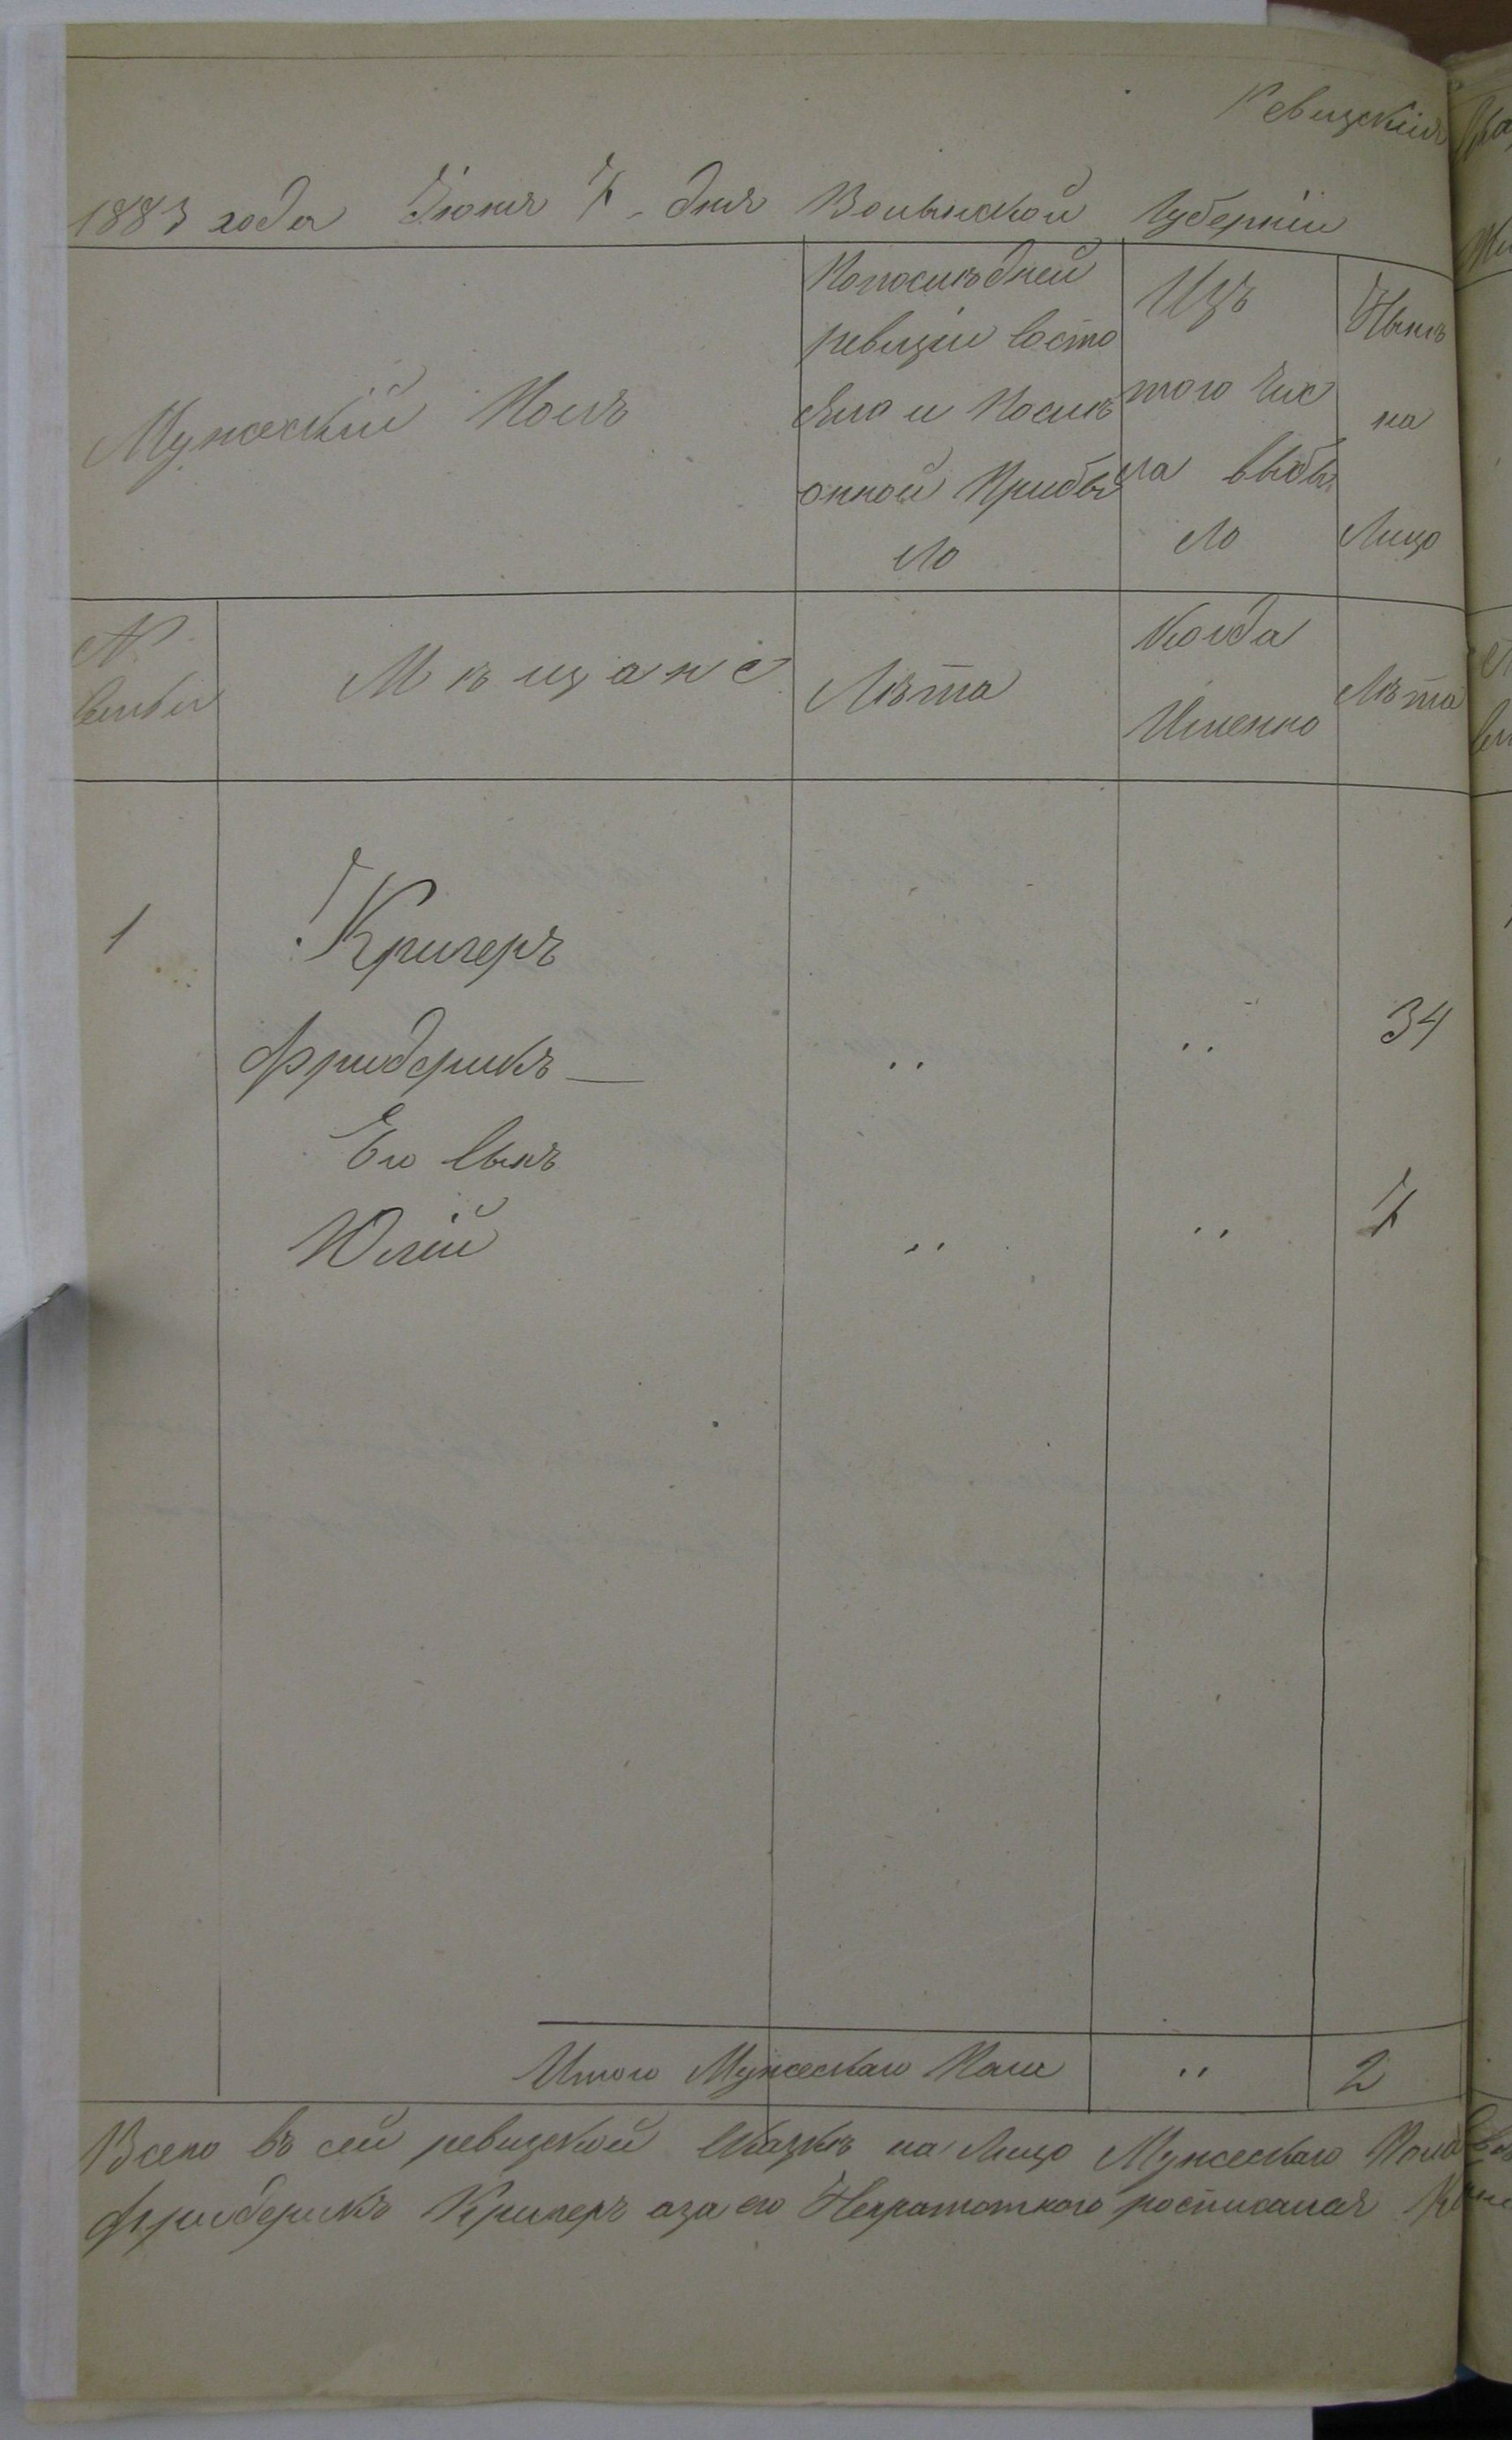 Ревизская
1883 года Іюня 7 - дня Волынской Губерніи
Мужескій Полъ
Попослѣдней
ревизіи состо
яло и Послѣ
онной Прибы
ло
Изъ
того чис
ла выбы
ло
Нынѣ
на
Лицо
№
семьи
Мѣщане
Лѣта
Когда
Именно
Лѣта
1
Кригеръ
Фридерикъ — " " 34
Его Сынъ
Юлій " " 7
Итого Мужескаго Пола " 2
Всего въ сей ревизской Сказкѣ на Лицо Мужескаго Пола
Фридерикъ Кригеръ аза его Неграмотного росписался